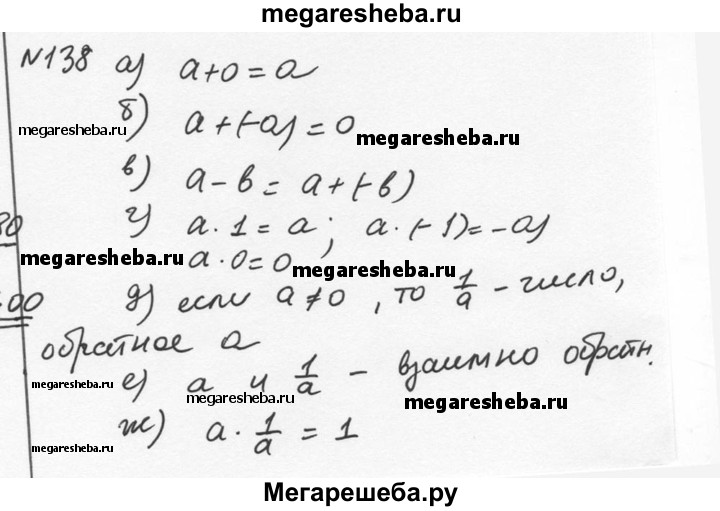 megaresheba.ru
N138 а) a+0=a
б) a+(-a)=0
megaresheba.ru megaresheba.ru
в) a-b=a+(-b)
30 г) a·1=a; a·(-1)=-a;
megaresheba.ru a·0=0 megaresheba.ru
00 д) если a≠0, то 1/a - число,
обратное a
megaresheba.ru е) a и 1/a - взаимно обратн.
megaresheba.ru
ж) a·1/a=1
megaresheba.ru
Мегарешеба.ру